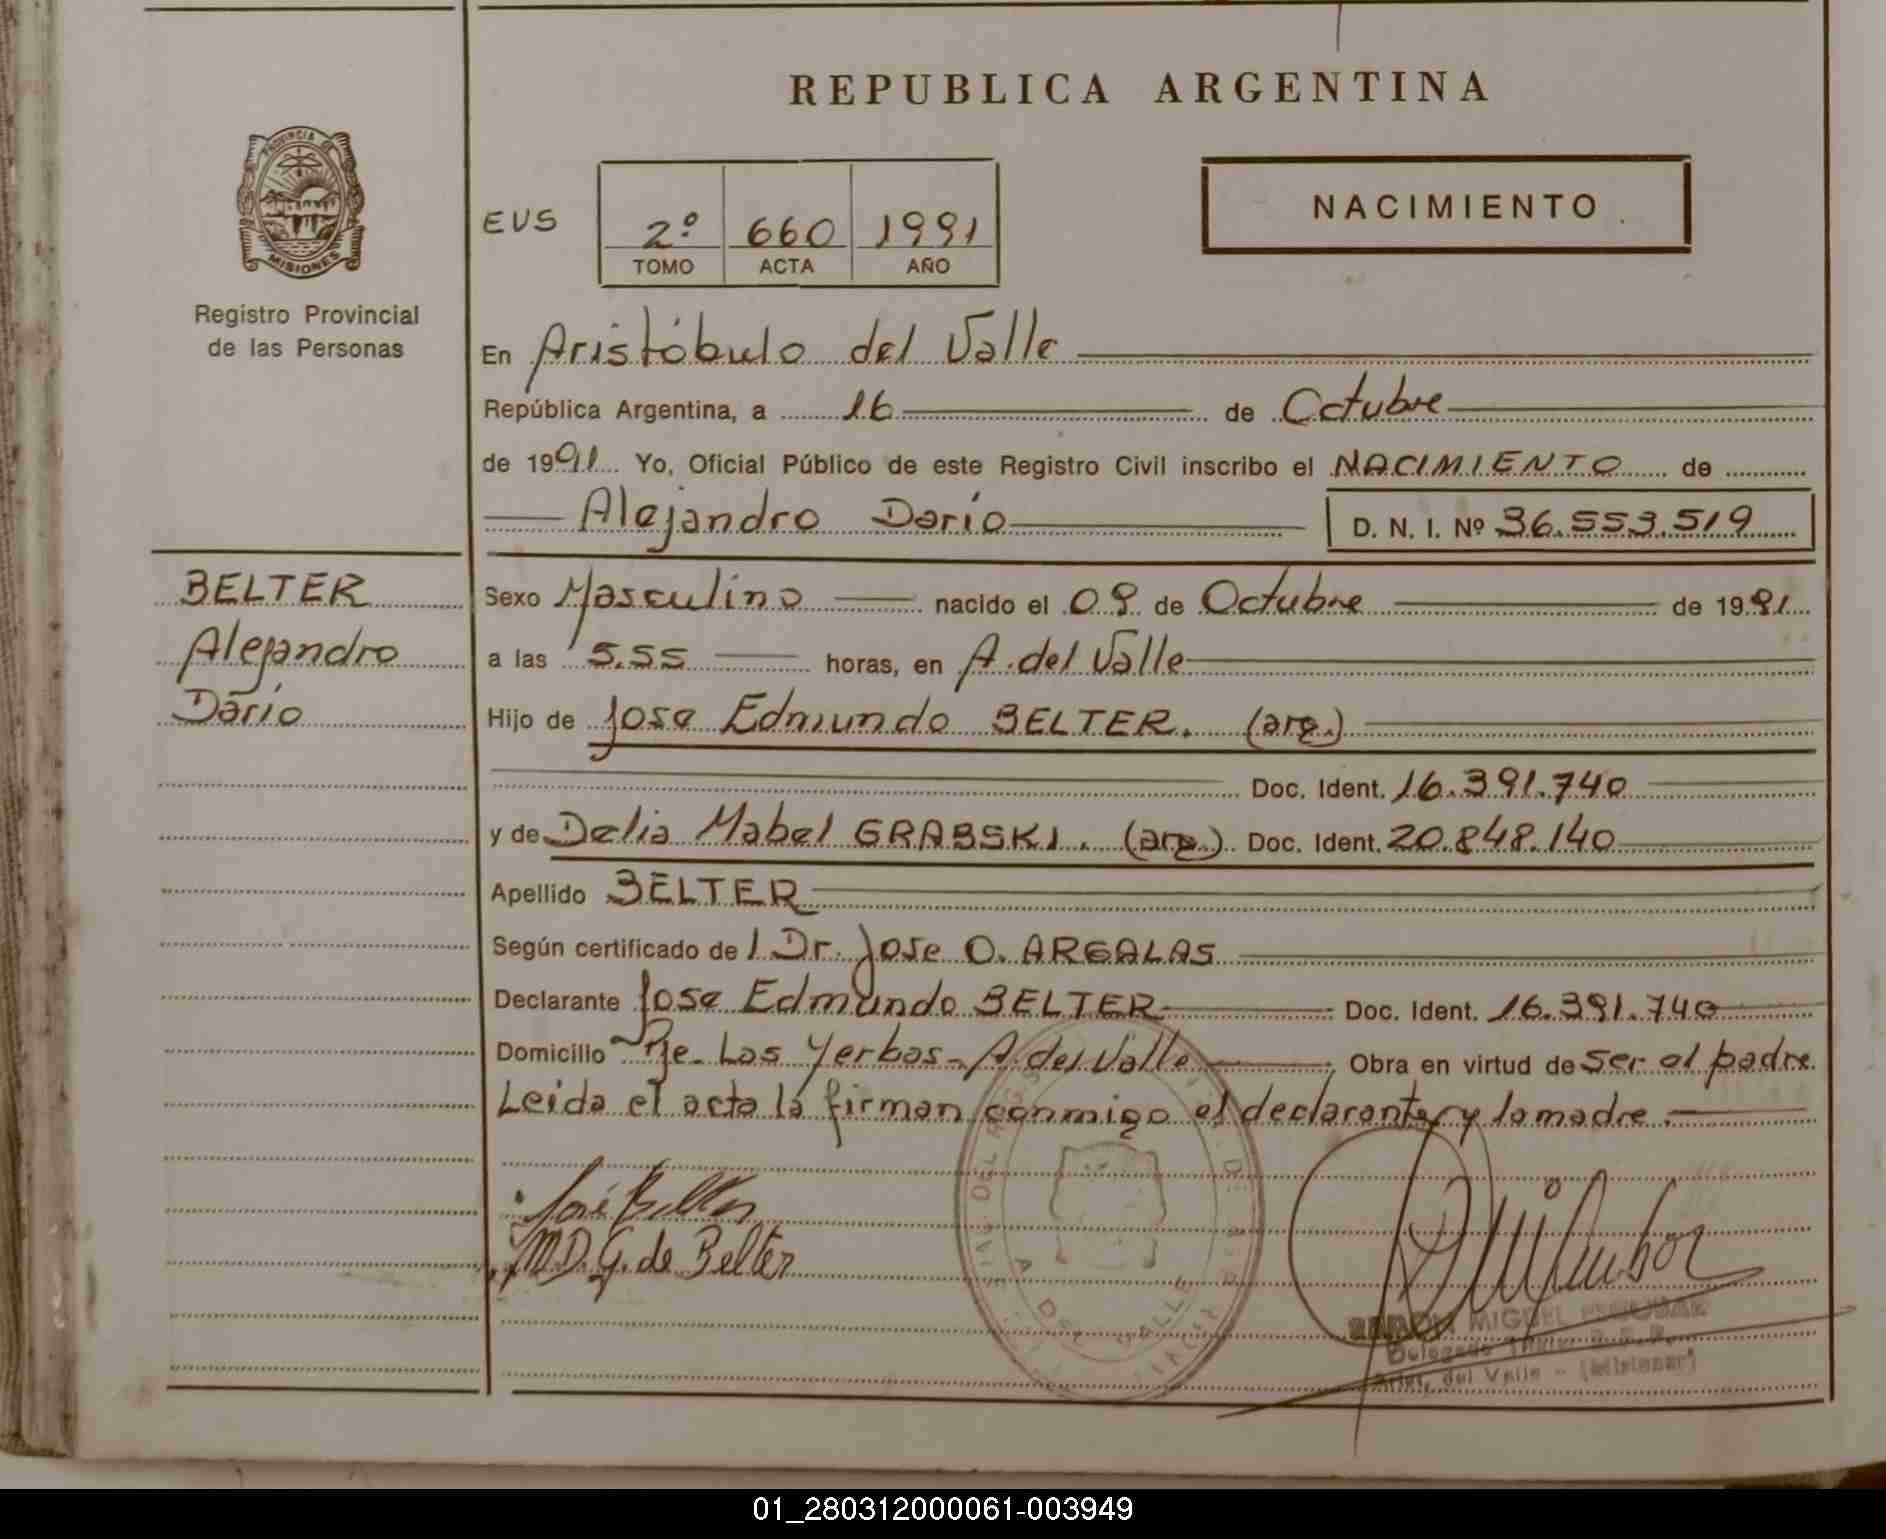 REPUBLICA ARGENTINA
PROVINCIA DE
MISIONES
Registro Provincial
de las Personas
EVS
2º 660 1991
TOMO ACTA AÑO
NACIMIENTO
En Aristóbulo del Valle
República Argentina, a 16 de Octubre
de 1991 Yo, Oficial Público de este Registro Civil inscribo el NACIMIENTO de
Alejandro Darío D. N. I. Nº 36.553.519
BELTER
Alejandro
Darío
Sexo Masculino nacido el 09 de Octubre de 1991
a las 5.55 horas, en A. del Valle
Hijo de Jose Edmundo BELTER. (arg.)
Doc. Ident. 16.391.740
y de Delia Mabel GRABSKI. (arg.) Doc. Ident. 20.848.140
Apellido BELTER
Según certificado de l Dr. Jose O. ARGALAS
Declarante Jose Edmundo BELTER Doc. Ident. 16.391.740
Domicilio Pje. Las Yerbas - A. del Valle Obra en virtud de ser el padre.
Leida el acta la firman conmigo el declarante y la madre.
José Belter
M.D.G. de Belter
A DEL VALLE
MIGUEL ESCOBAR
Delegado
Aris. del Valle - (Misiones)
01_280312000061-003949